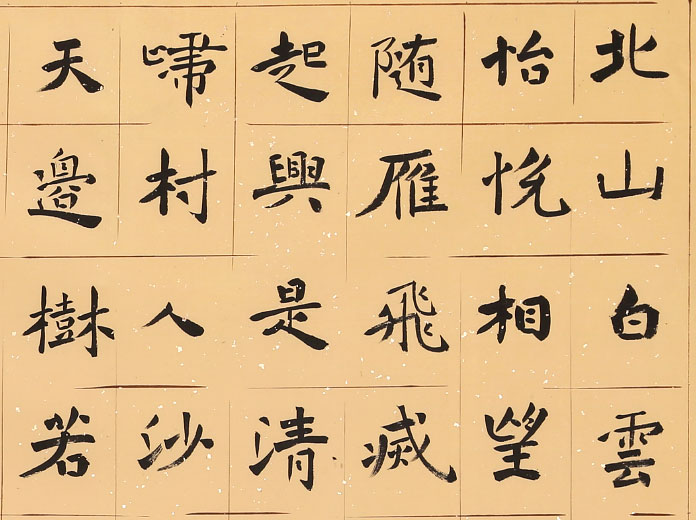 北山白雲
怡悅相望
随雁飛滅
起興是清
歸村人沙
天邊樹若